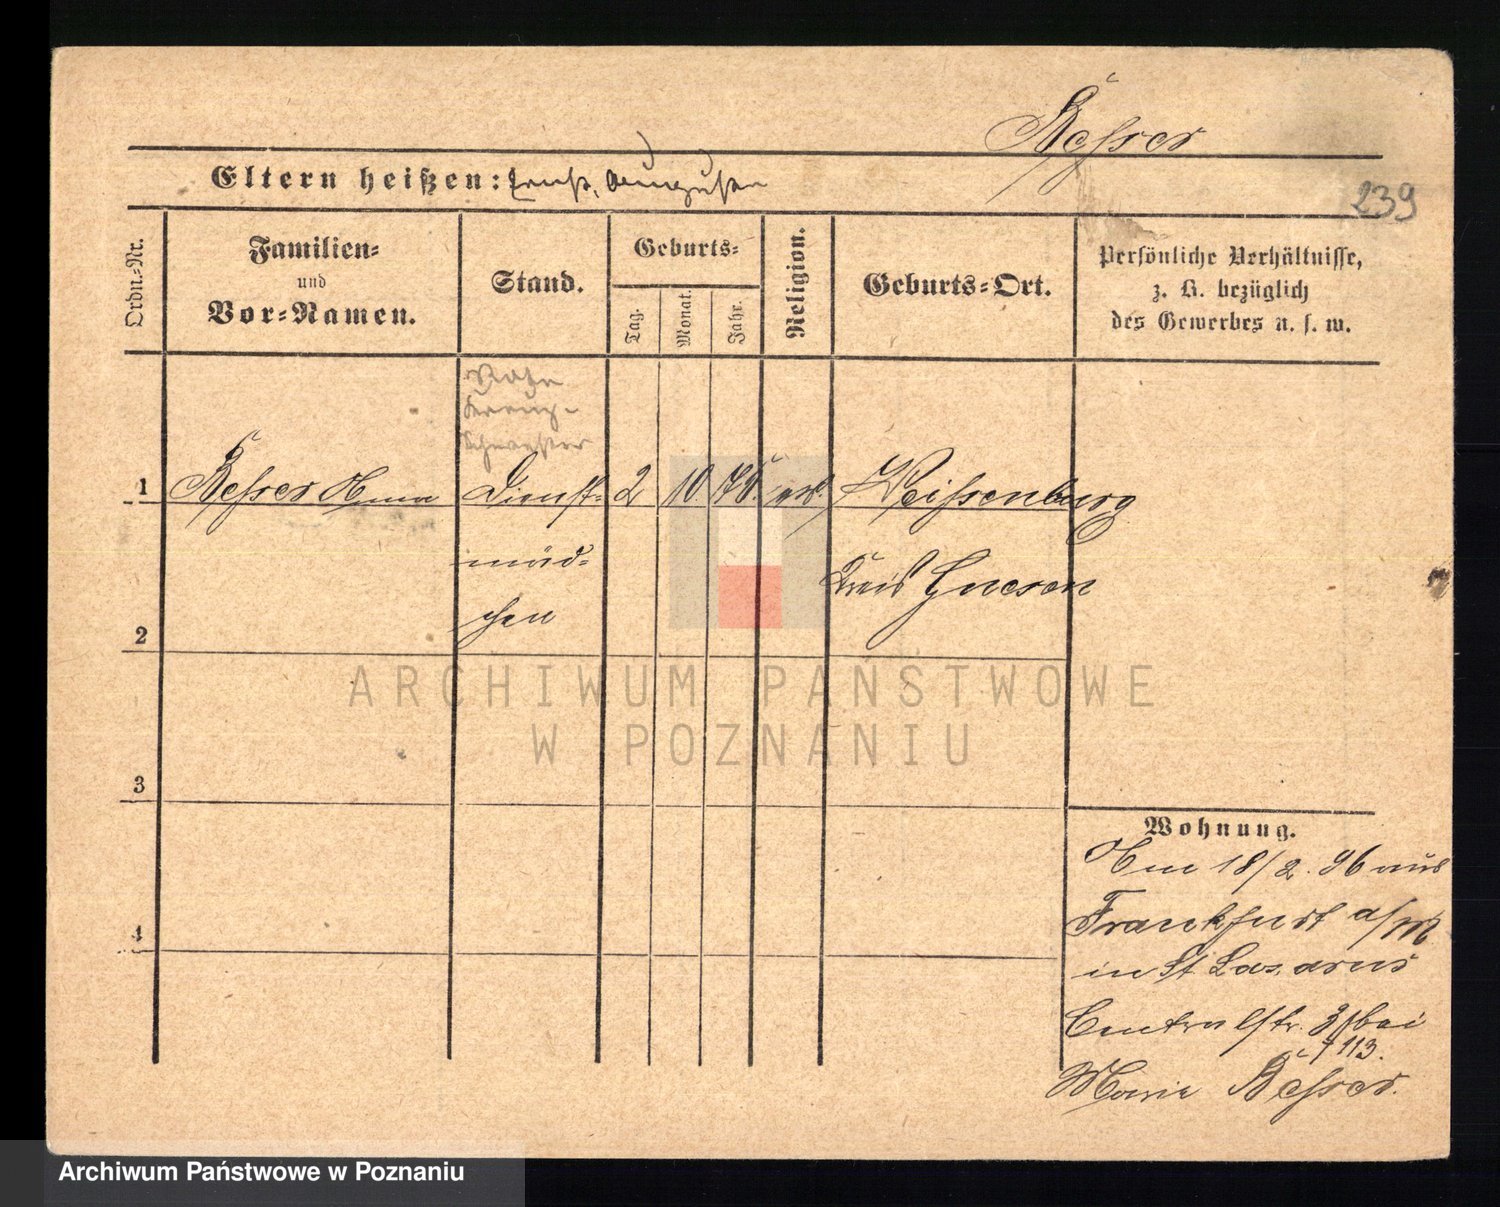 Besser
Eltern heißen: Ernst, Auguste
239
Ordn.-Nr.
Familien-
und
Vor-Namen.
Stand.
Geburts-
Tag.
Monat.
Jahr.
Religion.
Geburts-Ort.
Persönliche Verhältnisse,
z. B. bezüglich
des Gewerbes u. s. w.
Rote
Kreuz-
Schwester
1 Besser Dienst- 2 10 75. Weissenburg
mäd- Kreis Gnesen
chen
2
3
4
Wohnung.
Am 18/2. 96 aus
Frankfurt a/M
in St Lazarus
Centralstr. 3 bei
113.
Marie Besser.
ARCHIWUM PAŃSTWOWE
W POZNANIU
Archiwum Państwowe w Poznaniu